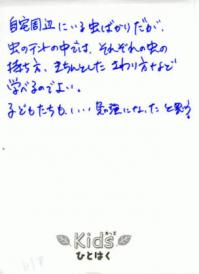 自宅周辺にいる虫ばかりだが、
虫のテントの中では、それぞれの虫の
持ち方、きちんとした さわり方など
学べるのでよい。
子どもたちも、いい勉強になったと思う
きっず
Kids
ひとはく